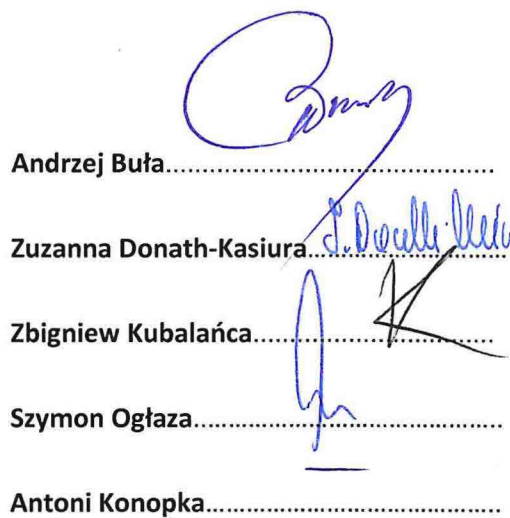 Andrzej Buła....................................................
Zuzanna Donath-Kasiura................................
Zbigniew Kubalańca.........................................
Szymon Ogłaza..................................................
Antoni Konopka................................................